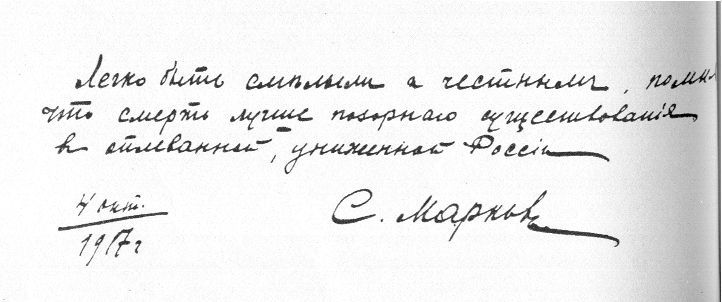 Легко быть смѣлымъ и честнымъ, помня
что смерть лучше позорнаго существованія
в оплеванной, униженной Россіи
4 окт.
1917 г
С. Марков